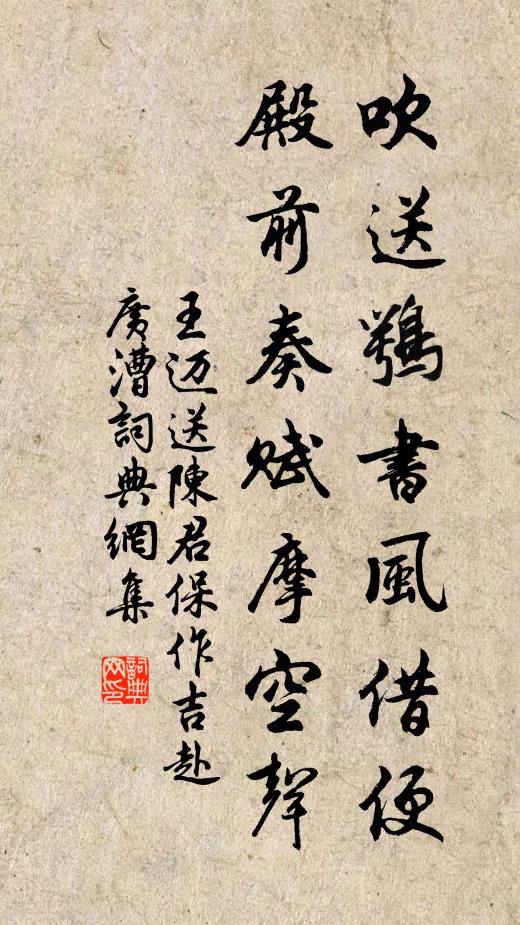 吹送鶚書風借便
殿前奏賦摩空聲
王迈送陳君保作吉赴
廣漕詞典網集
詞典网印